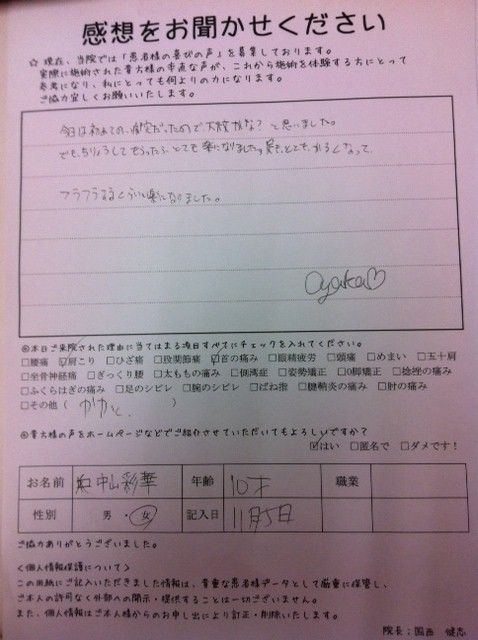 感想をお聞かせください
☆ 現在、当院では「患者様の喜びの声」を募集しております。
実際に施術された貴方様の率直な声が、これから施術を体験する方にとって
参考になり、私にとっても何よりの力になります。
ご協力宜しくお願いいたします。
今日は初めての、だったので、大丈夫かな？と思いました。
でも、ちりょうしてもらったら、とても楽になりました。とても、かるくなって、
フラフラするくらい楽になりました。
Ayaka♡
◎本日ご来院された理由に当てはまる項目すべてにチェックを入れてください。
□腰痛 ☑肩こり □ひざ痛 □股関節痛 ☑首の痛み □眼精疲労 □頭痛 □めまい □五十肩
□坐骨神経痛 □ぎっくり腰 □太ももの痛み □側湾症 □姿勢矯正 □O脚矯正 □捻挫の痛み
□ふくらはぎの痛み □足のシビレ □腕のシビレ □ばね指 □腱鞘炎の痛み □肘の痛み
□その他（ かかと、 ）
◎貴方様の声をホームページなどでご紹介させていただいてもよろしいですか？
☑はい □匿名で □ダメです！
お名前 中山彩華 年齢 10才 職業
性別 男・女 記入日 11月5日
ご協力ありがとうございました。
＜個人情報保護について＞
この用紙にご記入いただきました情報は、貴重な患者様データとして厳重に保管し、
ご本人の許可なく外部への開示・提供することは一切ございません。
また、個人情報はご本人様からのお申し出により訂正・削除いたします。
院長：国西 健志